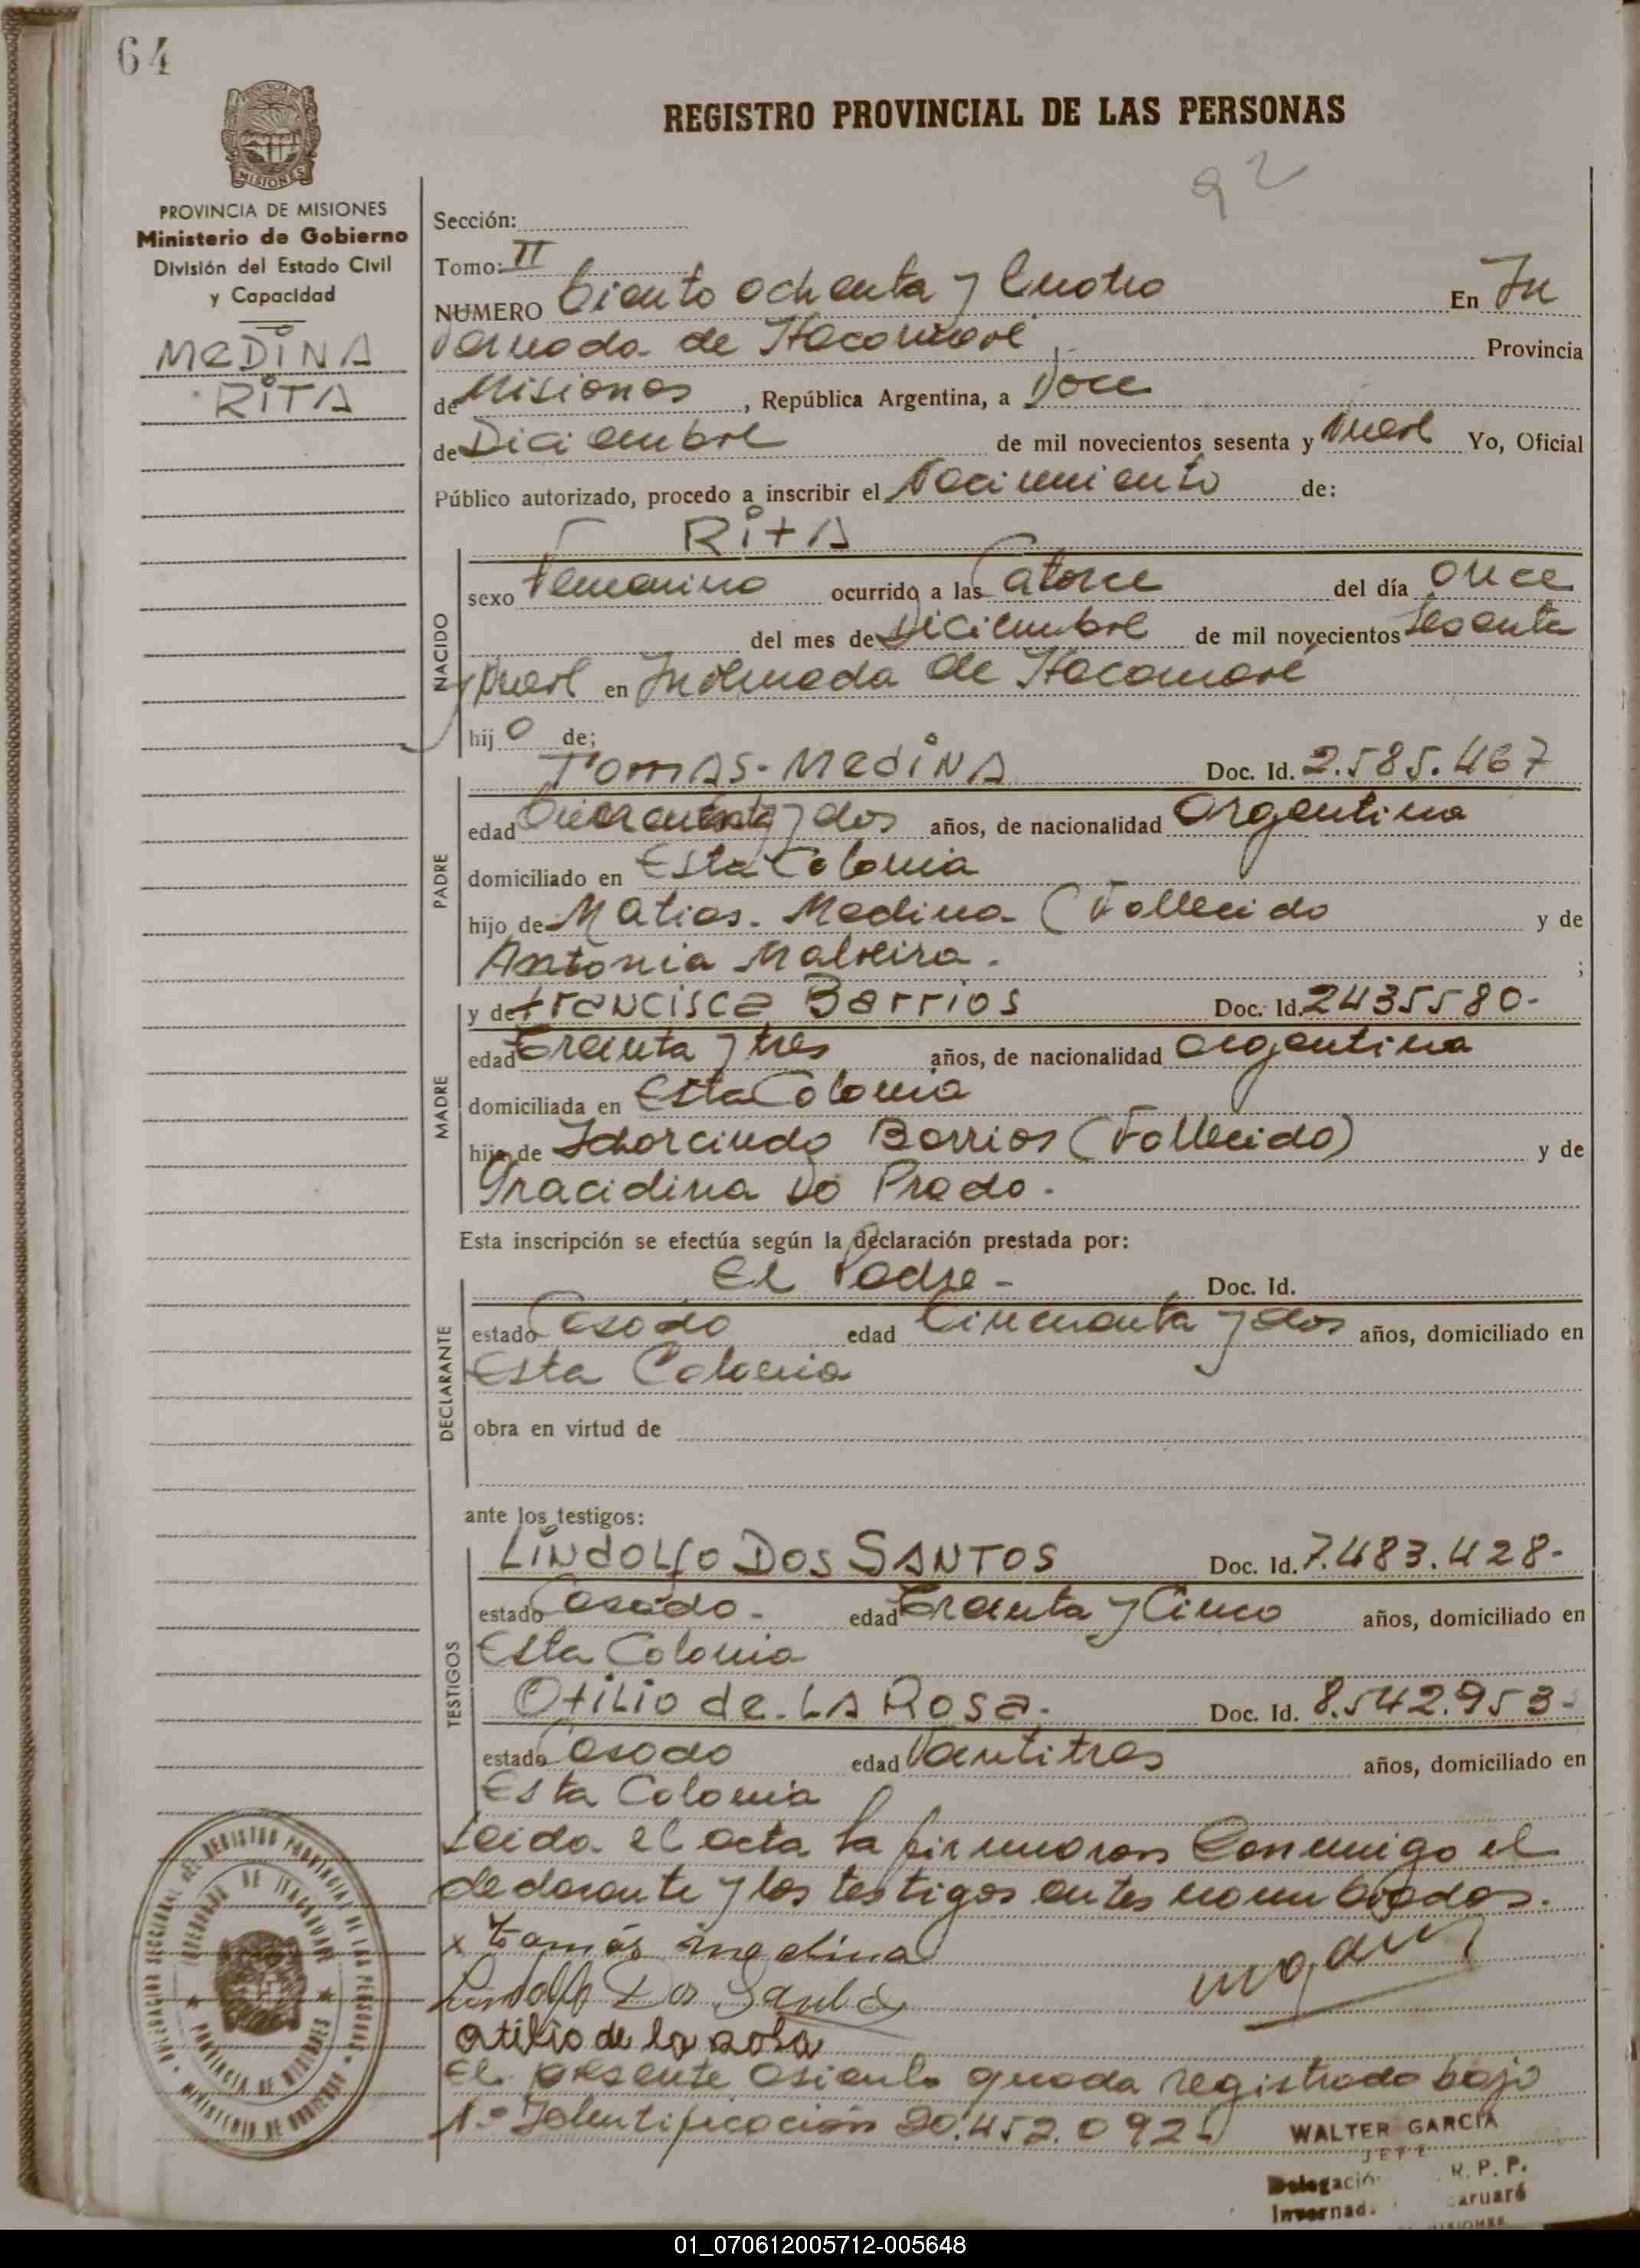 64
REGISTRO PROVINCIAL DE LAS PERSONAS
92
MISIONES
PROVINCIA DE MISIONES
Ministerio de Gobierno
División del Estado Civil
y Capacidad
MEDINA
RITA
Sección:
Tomo: II
NUMERO Ciento ochenta y Cuatro En In
vernada de Itacaruaré Provincia
de Misiones, República Argentina, a Doce
de Diciembre de mil novecientos sesenta y nueve Yo, Oficial
Público autorizado, procedo a inscribir el Nacimiento de:
RitA
NACIDO
sexo Femenino ocurrido a las Catorce del día Once
del mes de Diciembre de mil novecientos Sesenta
y nueve en Invernada de Itacaruaré
hij o de;
TOMAS-MEDiNA Doc. Id. 2.585.467
PADRE
edad Cincuenta y dos años, de nacionalidad Argentina
domiciliado en Esta Colonia
hijo de Matias. Medina (Fallecido y de
Antonia Malveira. ;
MADRE
y de Francisca Barrios Doc. Id. 2435580-
edad Treinta y tres años, de nacionalidad argentina
domiciliada en Esta Colonia
hija de Barrios (Fallecido) y de
Gracidina Do Prado.
Esta inscripción se efectúa según la declaración prestada por:
El Padre- Doc. Id.
DECLARANTE
estado Casado edad Cincuenta y dos años, domiciliado en
Esta Colonia
obra en virtud de
ante los testigos:
TESTIGOS
LiNdOLfO DOS SANTOS Doc. Id. 7.483.428-
estado Casado. edad Treinta y Cinco años, domiciliado en
Esta Colonia
OtiLiO de. LA ROSa. Doc. Id. 8.542.953-
estado Casado edad Veintitres años, domiciliado en
Esta Colonia
Leida el acta la firmaron Conmigo el
declarante y los testigos antes nombrados.
x Tomás medina
Lindolfo Dos Santos
otilio de la rosa
El presente asiento queda registrado bajo
N.º Identificación 20.452.092-
WALTER GARCIA
JEFE
Delegación R. P. P.
Invernad. aruaré
MISIONES
DELEGACION SECCIONAL DEL REGISTRO PROVINCIAL DE LAS PERSONAS
MINISTERIO DE GOBIERNO
INVERNADA DE ITACARUARE
PROVINCIA DE MISIONES
01_070612005712-005648